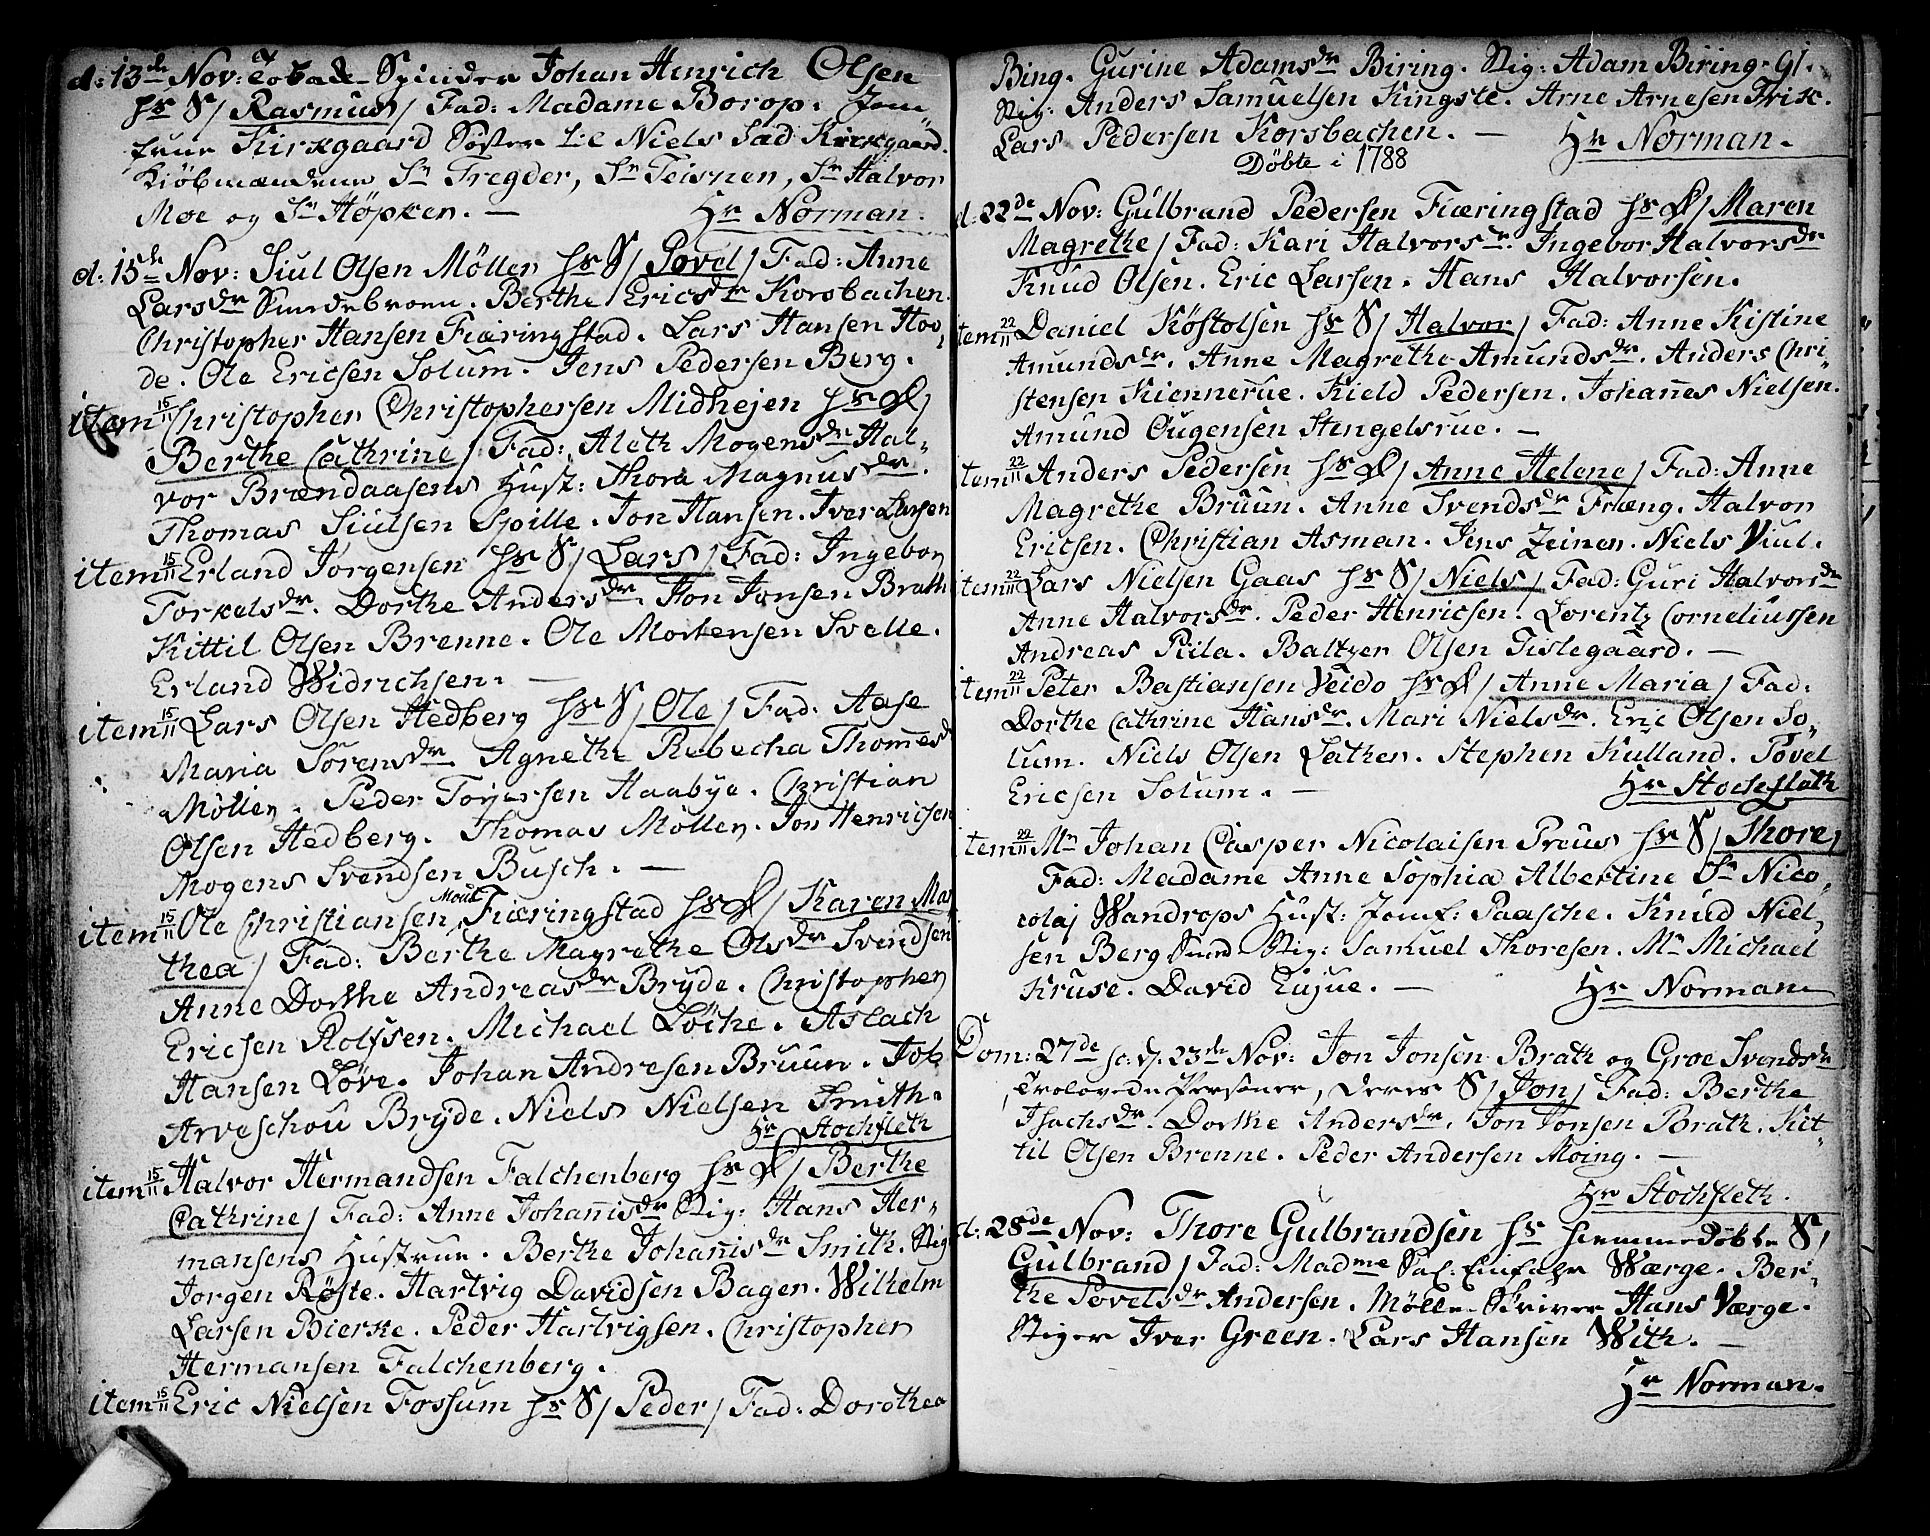 d: 13de Nov: Tobak Spinder Johan Henrich Olsen
hs S/ Rasmus/ Fad: Madame Borop. Jom-
frue Kirkgaard Søster til Niels Sad Kirkgaard.
Kiøbmændene Sr Tregder, Sr Teisnen, Sr Halvor
Moe og Sr Höpken. — Hr Norman.
d: 15de Nov: Siul Olsen Möller hs S/ Povel/ Fad: Anne
Larsdr Berthe Ericsdr Korsbachen.
Christopher Hansen Fiæringstad. Lars Hansen Hoo-
de. Ole Ericsen Solum. Jens Pedersen Berg.
item 15/11 Christopher Christophersen Midhejen hs D/
Berthe Cathrine/ Fad: Aleth Mogensdr Hal-
vor Brændaasens Hust: Thora Magnusdr.
Thomas Siulsen Spille. Jon Hansen. Iver Larsen
item 15/11 Erland Jørgensen hs S/ Lars/ Fad: Ingebor
Torkelsdr. Dorthe Andersdr. Jon Jonsen Brath
Kittil Olsen Brenne. Ole Mortensen Svelle.
Erland Widrichsen. —
item 15/11 Lars Olsen Hedberg hs S/ Ole/ Fad: Aase
Maria Sørensdr Agnethe Rebecha Thomesd
Möller. Peder Torjersen Haabye. Christian
Olsen Hedberg. Thomas Möller. Jon Henricsen
Mogens Svendsen Busch. —
item 15/11 Ole Christiansen Moue Fiæringstad hs D/ Karen Mar
thea/ Fad: Berthe Magrethe Olsdr Svendsen
Anne Dorthe Andreasdr Brÿde. Christopher
Ericsen Rolfsen. Michael Löcke. Aslach
Hansen Löve. Johan Andresen Bruun. Job
Arveschou Brÿde. Niels Nielsen Smith.
Hr Stochfleth
item 15/11 Halvor Hermandsen Falchenberg hs D/ Berthe
Cathrine/ Fad: Anne Johannisdr Stig: Hans Her-
mansens Hustrue. Berthe Johannisdr Smith. Stig
Jorgen Röste. Hartvig Davidsen Bager. Wilhelm
Larsen Bierke. Peder Hartvigsen. Christopher
Hermansen Falchenberg.
item 15/11 Eric Nielsen Fossum hs S/ Peder/ Fad: Dorothea
Bing. Gurine Adamsdr Biring. Stig: Adam Biring. 91.
Stig: Anders Samuelsen Kingste. Arne Arnesen Frix.
Lars Pedersen Korsbachen. — Hr Norman.
Döbte i 1788
d: 22de Nov: Gulbrand Pedersen Fiæringstad hs D/ Maren
Magrethe/ Fad: Kari Halvorsdr. Ingebor Halvorsdr
Knud Olsen. Eric Larsen. Hans Halvorsen.
item 22/11 Daniel Köstolsen hs S/ Halvor/ Fad: Anne Kistine
Amundsdr. Anne Magrethe Amundsdr. Anders Chri-
stensen Kiennerue. Kield Pedersen. Johannes Nielsen.
Amund Ougensen Stengelsrue. —
item 22/11 Anders Pedersen hs D/ Anne Helene/ Fad: Anne
Magrethe Bruun. Anne Svendsdr Fræng. Halvor
Ericsen. Christian Asman. Jens Zeiner. Niels Viul.
item 22/11 Lars Nielsen Gaas hs S/ Niels/ Fad: Guri Halvorsdr
Anne Halvorsdr. Peder Henricsen. Lorentz Corneliussen
Andreas Piila. Baltzer Olsen Tislegaard. —
item 22/11 Peter Bastiansen Veido hs D/ Anne Maria/ Fad:
Dorthe Cathrine Hansdr. Mari Nielsdr. Eric Olsen So-
lum. Niels Olsen Lather. Stephen Kulland. Povel
Ericsen Solum. — Hr Stochfleth
item 22/11 Mr Johan Casper Nicolaisen Preus hs S/ Thore/
Fad: Madame Anne Sophia Albertine Sr Nico-
colaj Wandrops Hust: Jomf: Paasche. Knud Niel-
sen Berg Stig: Samuel Thoresen. Mr Michael
Kruse. David Eujue. — Hr Norman
Dom: 27de sc: d. 23de Nov: Jon Jonsen Brath og Groe Svendsdr
Trolovede Personer, deres S/ Jon/ Fad: Berthe
Isachsdr. Dorthe Andersdr. Jon Jonsen Brath. Kit-
til Olsen Brenne. Peder Andersen Moing. —
Hr Stochfleth.
d: 28de Nov: Thore Gulbrandsen hs hiemmedøbte S/
Gulbrand/ Fad: Madme Sal: Einfahr Wærge. Ber-
the Povelsdr Andersen. Mølle Skriver Hans Værge.
Stiger Iver Green. Lars Hansen With. —
Hr Norman.